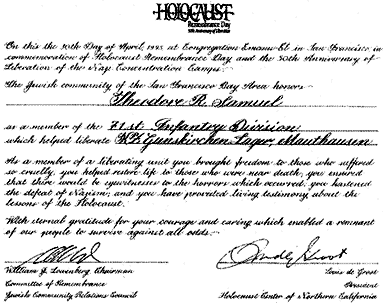 HOLOCAUST
Remembrance Day
50th Anniversary of Liberation
On this the 30th Day of April, 1995 at Congregation Emanu-El in San Francisco in
commemoration of Holocaust Remembrance Day and the 50th Anniversary of
Liberation of the Nazi Concentration Camps
The Jewish community of the San Francisco Bay Area honors
Theodore R. Samuel
as a member of the 71st Infantry Division
which helped liberate Gunskirchen Lager, Mauthausen
As a member of a liberating unit you brought freedom to those who suffered
so cruelly, you helped restore life to those who were near death, you ensured
that there would be eyewitnesses to the horrors which occurred, you hastened
the defeat of Nazism, and you have provided living testimony about the
lessons of the Holocaust.
With eternal gratitude for your courage and caring which enabled a remnant
of our people to survive against all odds.
William J. Lowenberg, Chairman
Committee of Remembrance
Jewish Community Relations Council
Louis de Groot
President
Holocaust Center of Northern California